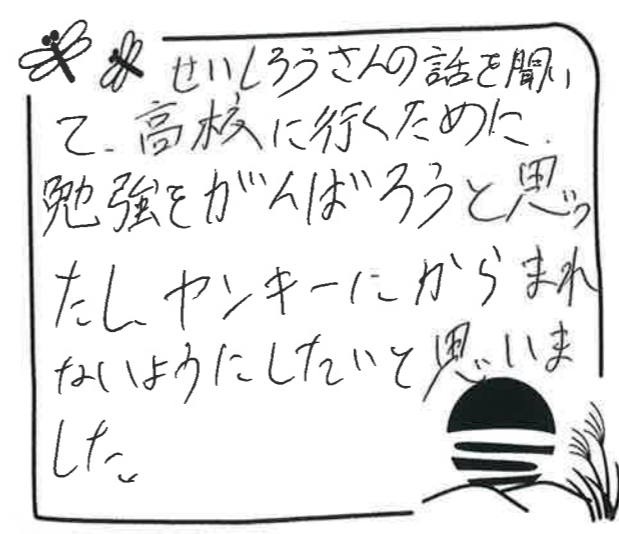 せいしろうさんの話を聞い
て、高校に行くために
勉強をがんばろうと思っ
たし、ヤンキーにからまれ
ないようにしたいと思いま
した。